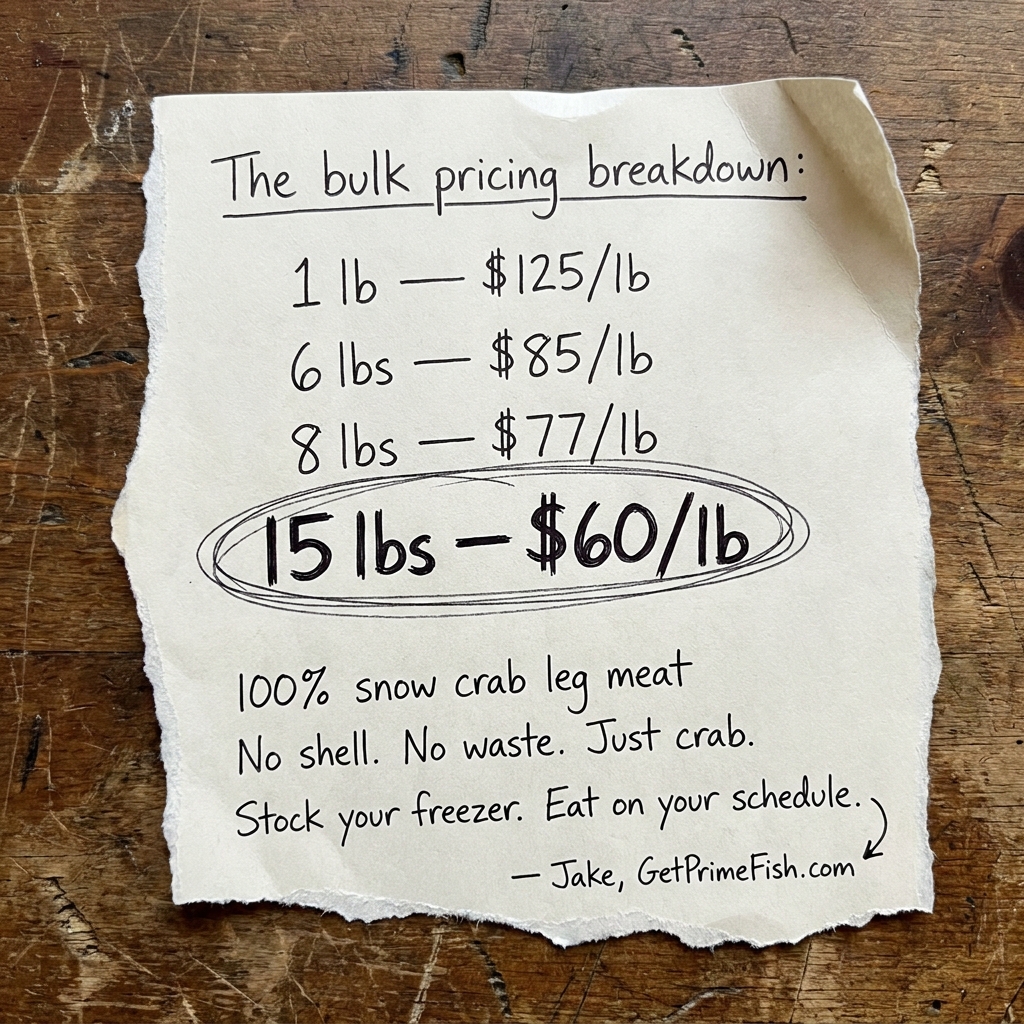 The bulk pricing breakdown:
1 lb — $125/lb
6 lbs — $85/lb
8 lbs — $77/lb
15 lbs — $60/lb
100% snow crab leg meat
No shell. No waste. Just crab.
Stock your freezer. Eat on your schedule.
— Jake, GetPrimeFish.com